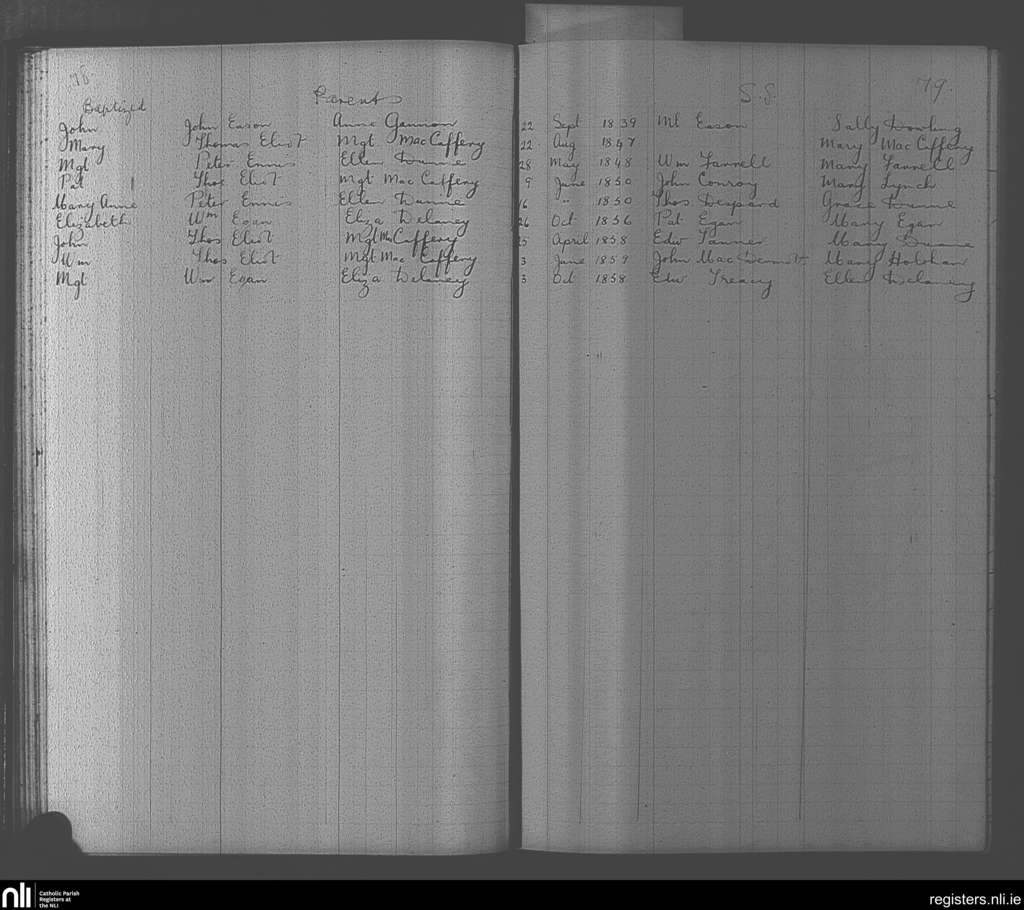 78
79.
Baptized Parents S.S.
John John Eason Anne Gannon 22 Sept 1839 Ml Eason Sally Dowling
Mary Thomas Eliot Mgt MacCaffery 22 Aug 1847 Mary MacCaffery
Mgt Peter Ennis Ellen Dunne 28 May 1848 Wm Farrell Mary Farrell
Pat Thos Eliot Mgt Mac Caffery 9 June 1850 John Conroy Mary Lynch
Mary Anne Peter Ennis Ellen Dunne 16 " 1850 Thos Despard Grace Dunne
Elizabeth Wm Egan Eliza Delaney 26 Oct 1856 Pat Egan Mary Egan
John Thos Eliot Mgt McCaffery 25 April 1858 Edw Mary Dunne
Wm Thos Eliot Mgt Mac Caffery 3 June 1859 John MacDermott Mary Holohan
Mgt Wm Egan Eliza Delaney 3 Oct 1858 Edw Treacy Ellen Delaney
nli Catholic Parish
Registers at
the NLI
registers.nli.ie